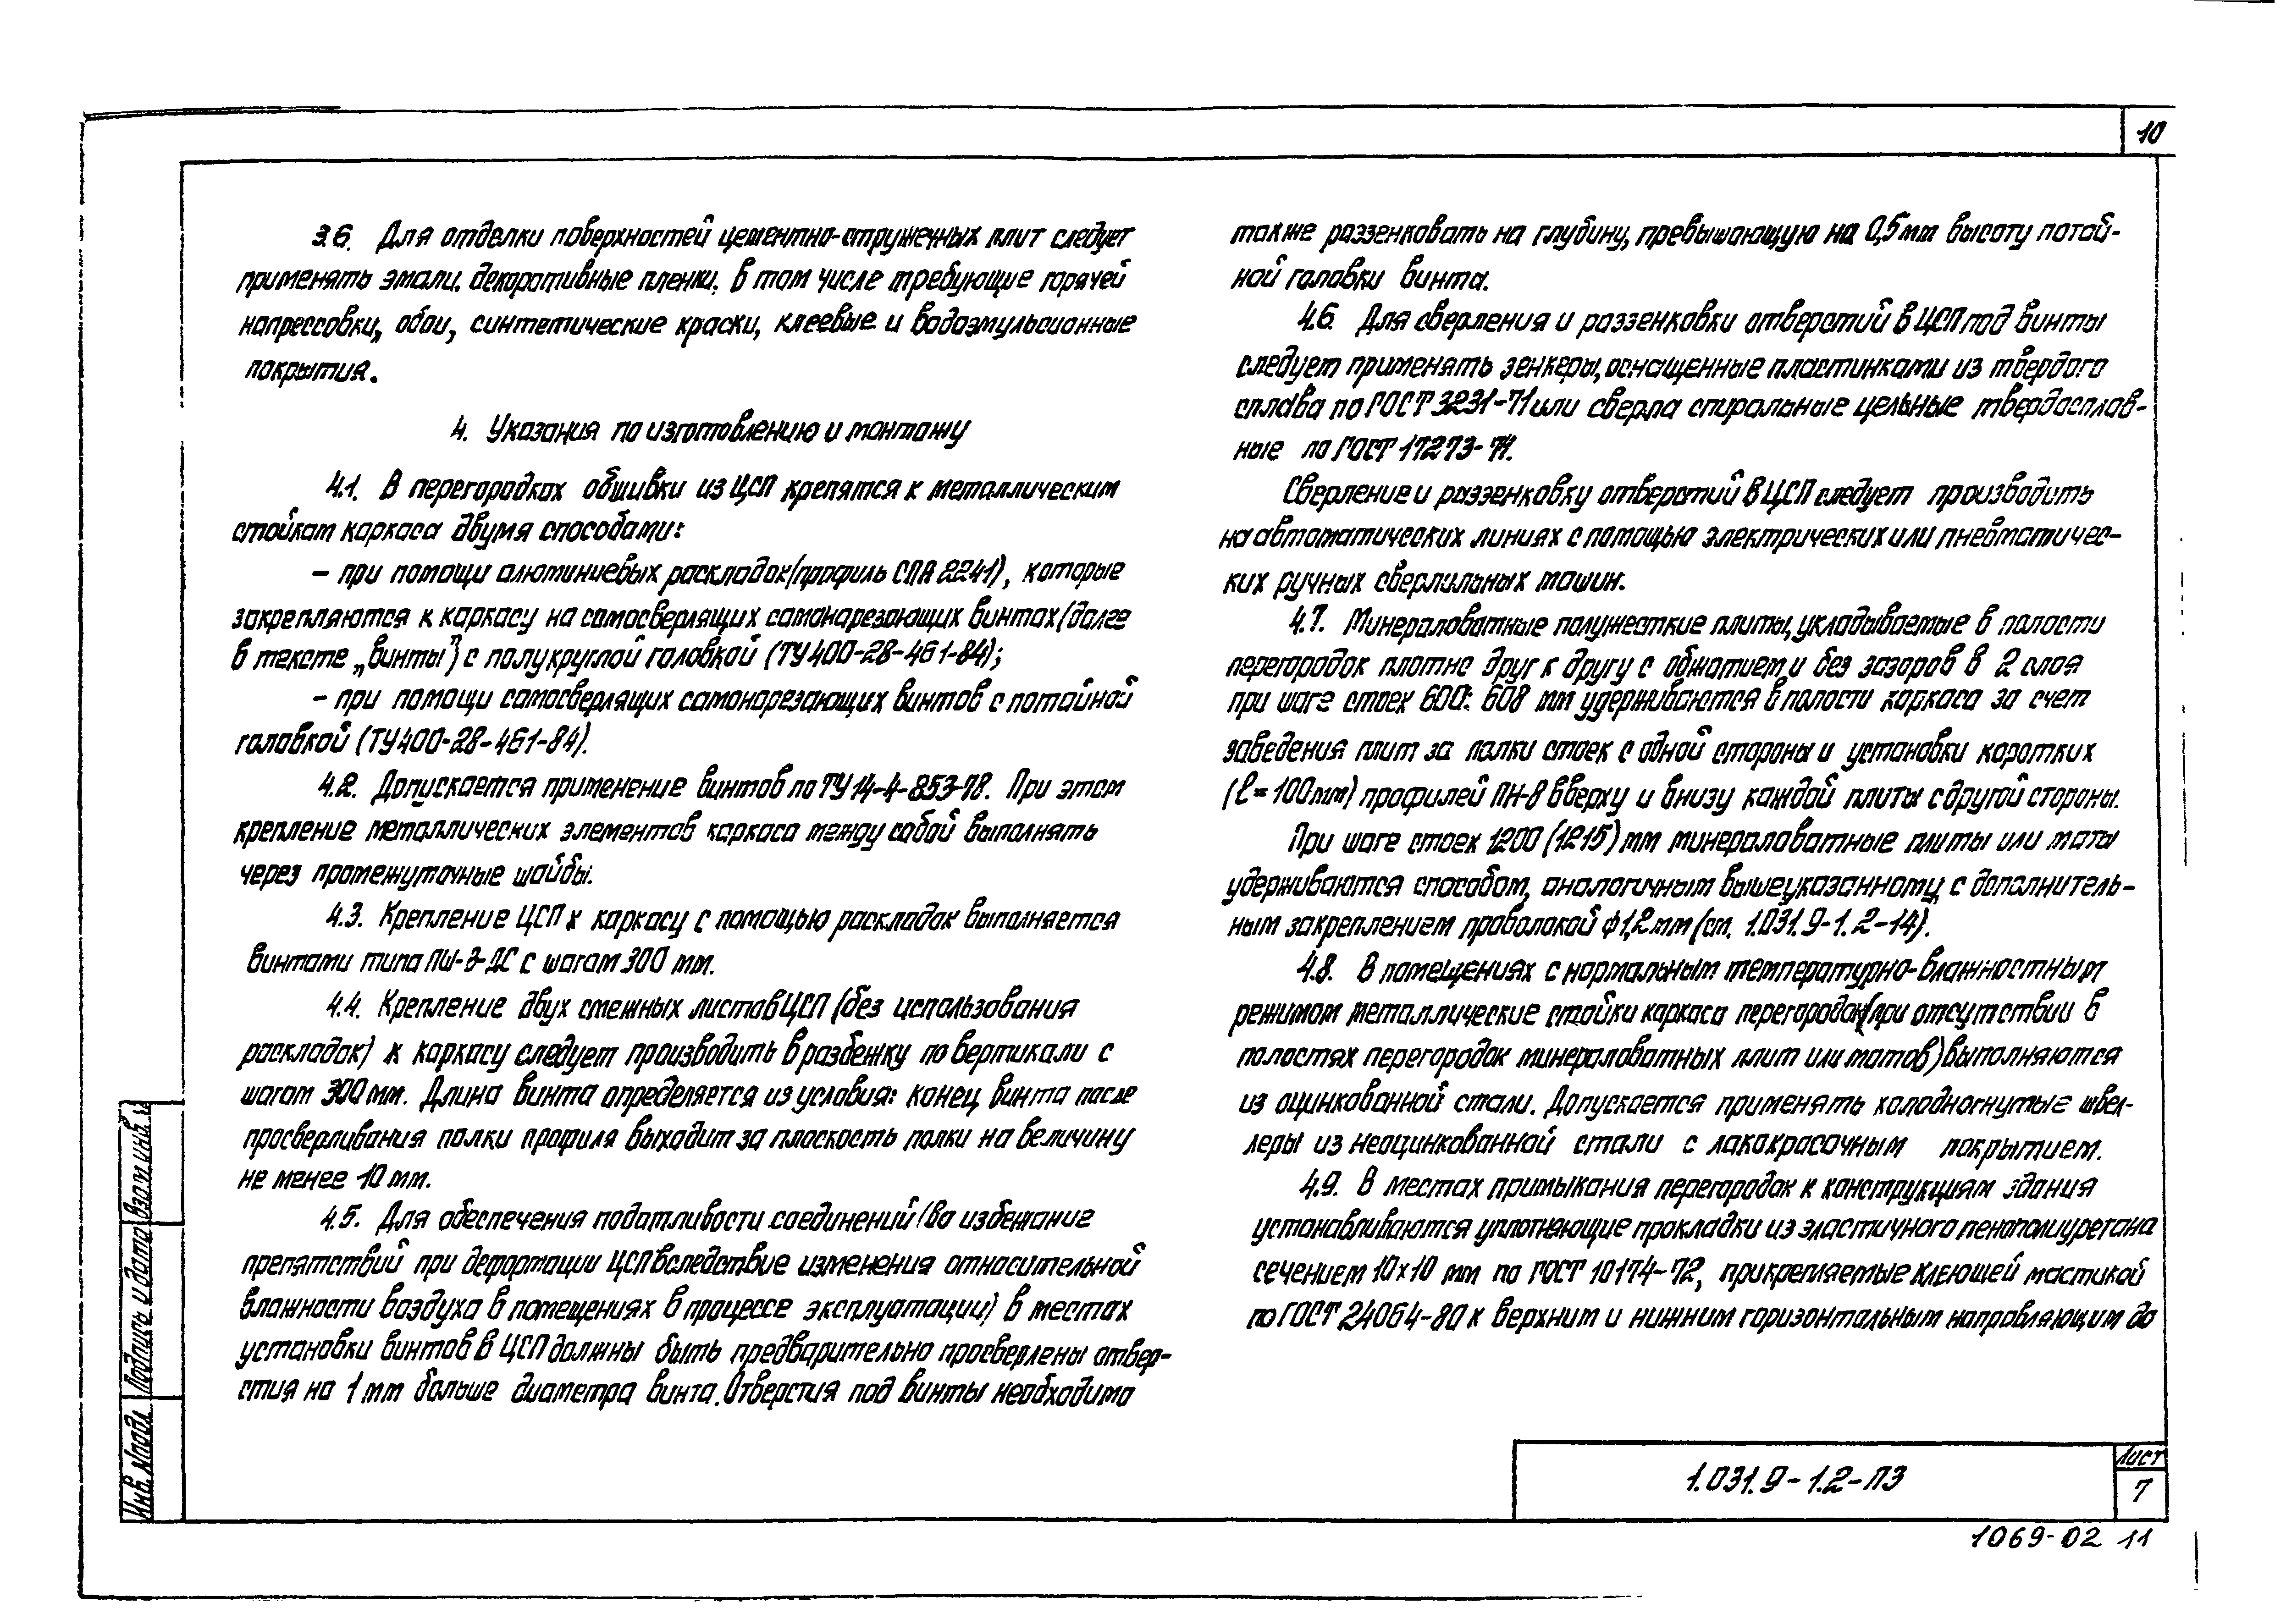 10
3.6. Для отделки поверхностей цементно-стружечных плит следует
применять эмали, декоративные пленки, в том числе требующие горячей
напрессовки, обои, синтетические краски, клеевые и водоэмульсионные
покрытия.
4. Указания по изготовлению и монтажу
4.1. В перегородках обшивки из ЦСП крепятся к металлическим
стойкам каркаса двумя способами:
– при помощи алюминиевых раскладок (профиль СПА 2241), которые
закрепляются к каркасу на самосверлящих самонарезающих винтах (далее
в тексте „винты") с полукруглой головкой (ТУ 400-28-461-84);
– при помощи самосверлящих самонарезающих винтов с потайной
головкой (ТУ 400-28-461-84).
4.2. Допускается применение винтов по ТУ 14-4-853-78. При этом
крепление металлических элементов каркаса между собой выполнять
через промежуточные шайбы.
4.3. Крепление ЦСП к каркасу с помощью раскладок выполняется
винтами типа ПШ-3-ДС с шагом 300 мм.
4.4. Крепление двух смежных листов ЦСП (без использования
раскладок) к каркасу следует производить в разбежку по вертикали с
шагом 300 мм. Длина винта определяется из условия: конец винта после
просверливания полки профиля выходит за плоскость полки на величину
не менее 10 мм.
4.5. Для обеспечения податливости соединений (во избежание
препятствий при деформации ЦСП вследствие изменения относительной
влажности воздуха в помещениях в процессе эксплуатации) в местах
установки винтов в ЦСП должны быть предварительно просверлены отвер-
стия на 1 мм больше диаметра винта. Отверстия под винты необходимо
также раззенковать на глубину, превышающую на 0,5 мм высоту потай-
ной головки винта.
4.6. Для сверления и раззенковки отверстий в ЦСП под винты
следует применять зенкеры, оснащенные пластинками из твердого
сплава по ГОСТ 3231-71 или сверла спиральные цельные твердосплав-
ные по ГОСТ 17273-71.
Сверление и раззенковку отверстий в ЦСП следует производить
на автоматических линиях с помощью электрических или пневматичес-
ких ручных сверлильных машин.
4.7. Минераловатные полужесткие плиты, укладываемые в полости
перегородок плотно друг к другу с обжатием и без зазоров в 2 слоя
при шаге стоек 600÷608 мм удерживаются в полости каркаса за счет
заведения плит за полки стоек с одной стороны и установки коротких
(ℓ=100 мм) профилей ПН-8 вверху и внизу каждой плиты с другой стороны.
При шаге стоек 1200 (1215) мм минераловатные плиты или маты
удерживаются способом, аналогичным вышеуказанному, с дополнитель-
ным закреплением проволокой ф1,2 мм (см. 1.031.9-1.2-14).
4.8. В помещениях с нормальным температурно-влажностным
режимом металлические стойки каркаса перегородок (при отсутствии в
полостях перегородок минераловатных плит или матов) выполняются
из оцинкованной стали. Допускается применять холодногнутые швел-
леры из неоцинкованной стали с лакокрасочным покрытием.
4.9. В местах примыкания перегородок к конструкциям здания
устанавливаются уплотняющие прокладки из эластичного пенополиуретана
сечением 10х10 мм по ГОСТ 10174-72, прикрепляемые клеющей мастикой
по ГОСТ 24064-80 к верхним и нижним горизонтальным направляющим до
Инв. № подл.
Подпись и дата
Взам. инв. №
1.031.9-1.2-ПЗ
Лист
7
1069-02 11